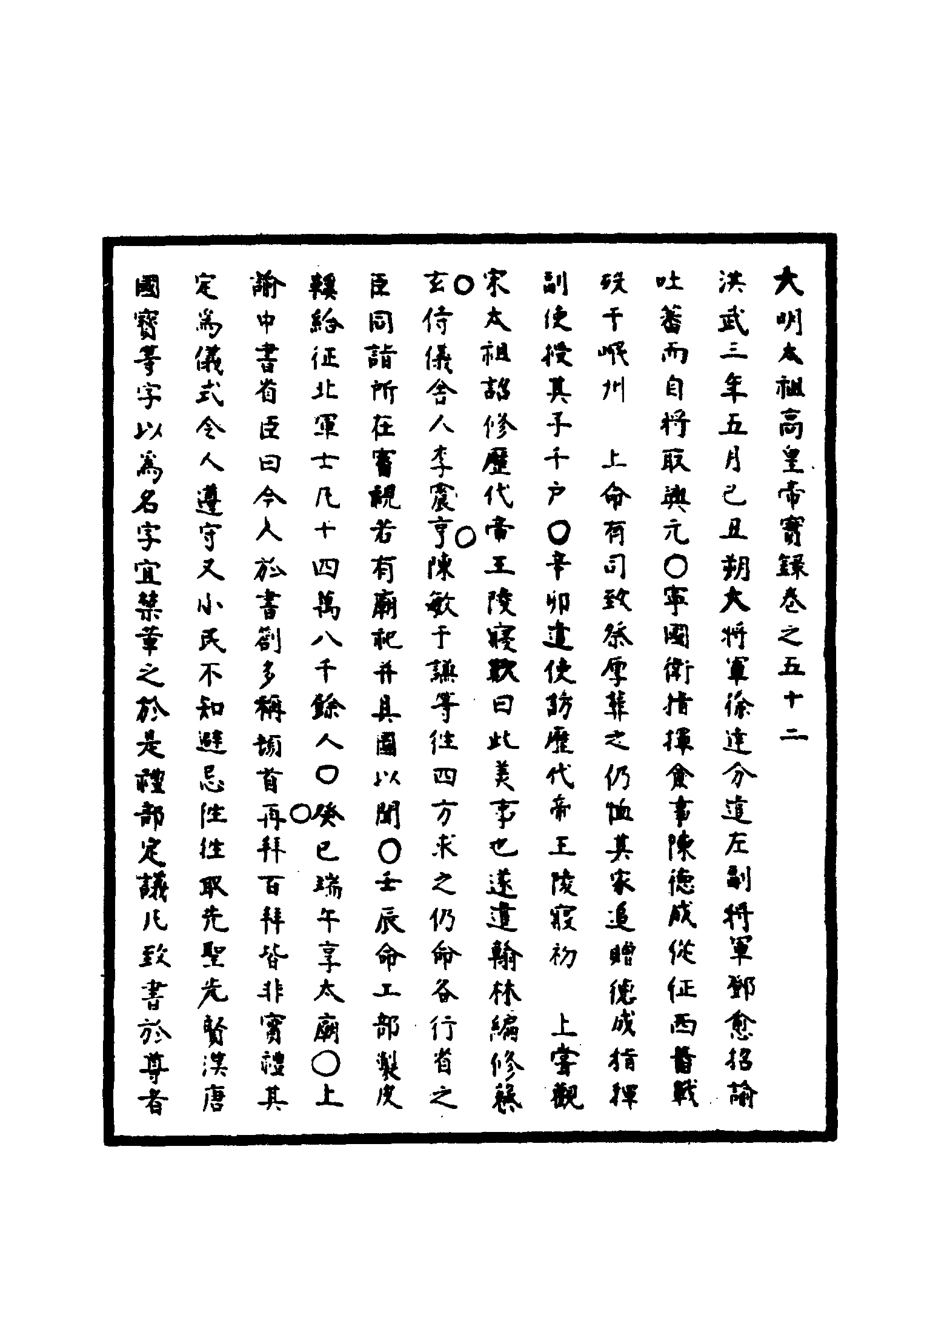 大明太祖高皇帝寶録卷之五十二
洪武三年五月己丑朔大將軍徐達分遣左副將軍鄧愈招諭
吐蕃而自將取興元〇寧國衛指揮僉事陳德成從征西番戰
歿于岷州　上命有司致祭厚葬之仍恤其家追贈德成指揮
副使授其子千户〇辛卯遣使訪歷代帝王陵寢初　上嘗觀
宋太祖詔修歷代帝王陵寢歎曰此美事也遂遣翰林編修蔡
玄〇侍儀舍人李震亨〇陳敏于謙等往四方求之仍命各行省之
臣同詣所在審視若有廟祀并具圖以聞〇壬辰命工部製皮
鞵給征北軍士凡十四萬八千餘人〇癸巳端午享太廟〇上
諭中書省臣曰今人於書劄多稱頓首再〇拜百拜皆非實禮其
定為儀式令人遵守又小民不知避忌往往取先聖先賢漢唐
國寶等字以為名字宜禁革之於是禮部定議凡致書於尊者